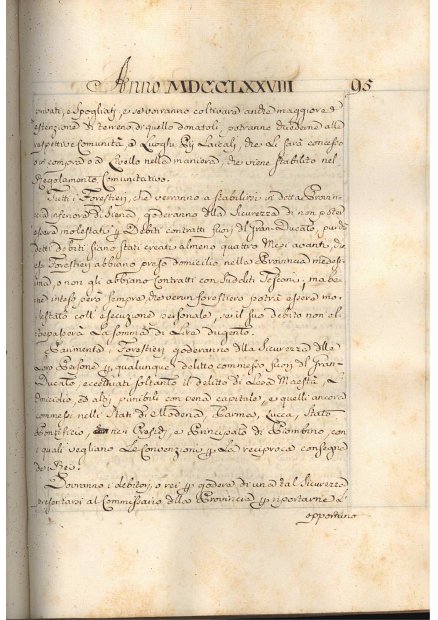 Anno MDCCLXXVIII 95
privati, e spogliati, e se vorranno coltivare anche maggiore e
estenzione di terreno, di quello donatoli, potranno chiederne alle
respettive Comunità, o Luoghi Pij Laicali, che li sarà concesso
o in compra, o a Livello nella maniera, che viene stabilito nel
Regolamento Comunitativo.
Tutti i Forestieri, che verranno a stabilirsi in detta Provin-
cia inferiore di Siena, goderanno della Sicurezza di non poter
essere molestati p Debiti contratti fuori del Gran-Ducato, purché
detti debiti siano stati creati almeno quattro Mesi avanti, che
essi Forestieri abbiano preso domicilio nella Provincia mede-
sima, o non gli abbiano contratti con Sudditi Toscani, ma be-
ne inteso però sempre, che verun forestiero potrà essere mo-
lestato coll'esecuzione personale, se il suo debito non ol-
trepasserà la somma di Lire dugento.
Parimente i Forestieri goderanno della Sicurezza delle
loro Persone p qualunque delitto commesso fuori di Gran-
Ducato, eccettuati soltanto il delitto di Lesa Maestà, L'o-
micidio, ed altri punibili con pena capitale, e quelli ancora
commessi nelli Stati di Modena, Parma, Lucca, Stato
Pontificio, nei Presidj, e Principato di Piombino, con
i quali vegliano Le Convenzioni p La reciproca consegna
de' Rei.
Dovranno i debitori, o rei p godere di una tal Sicurezza
presentarsi al Commissario della Provincia p riportarne l'
opportuno